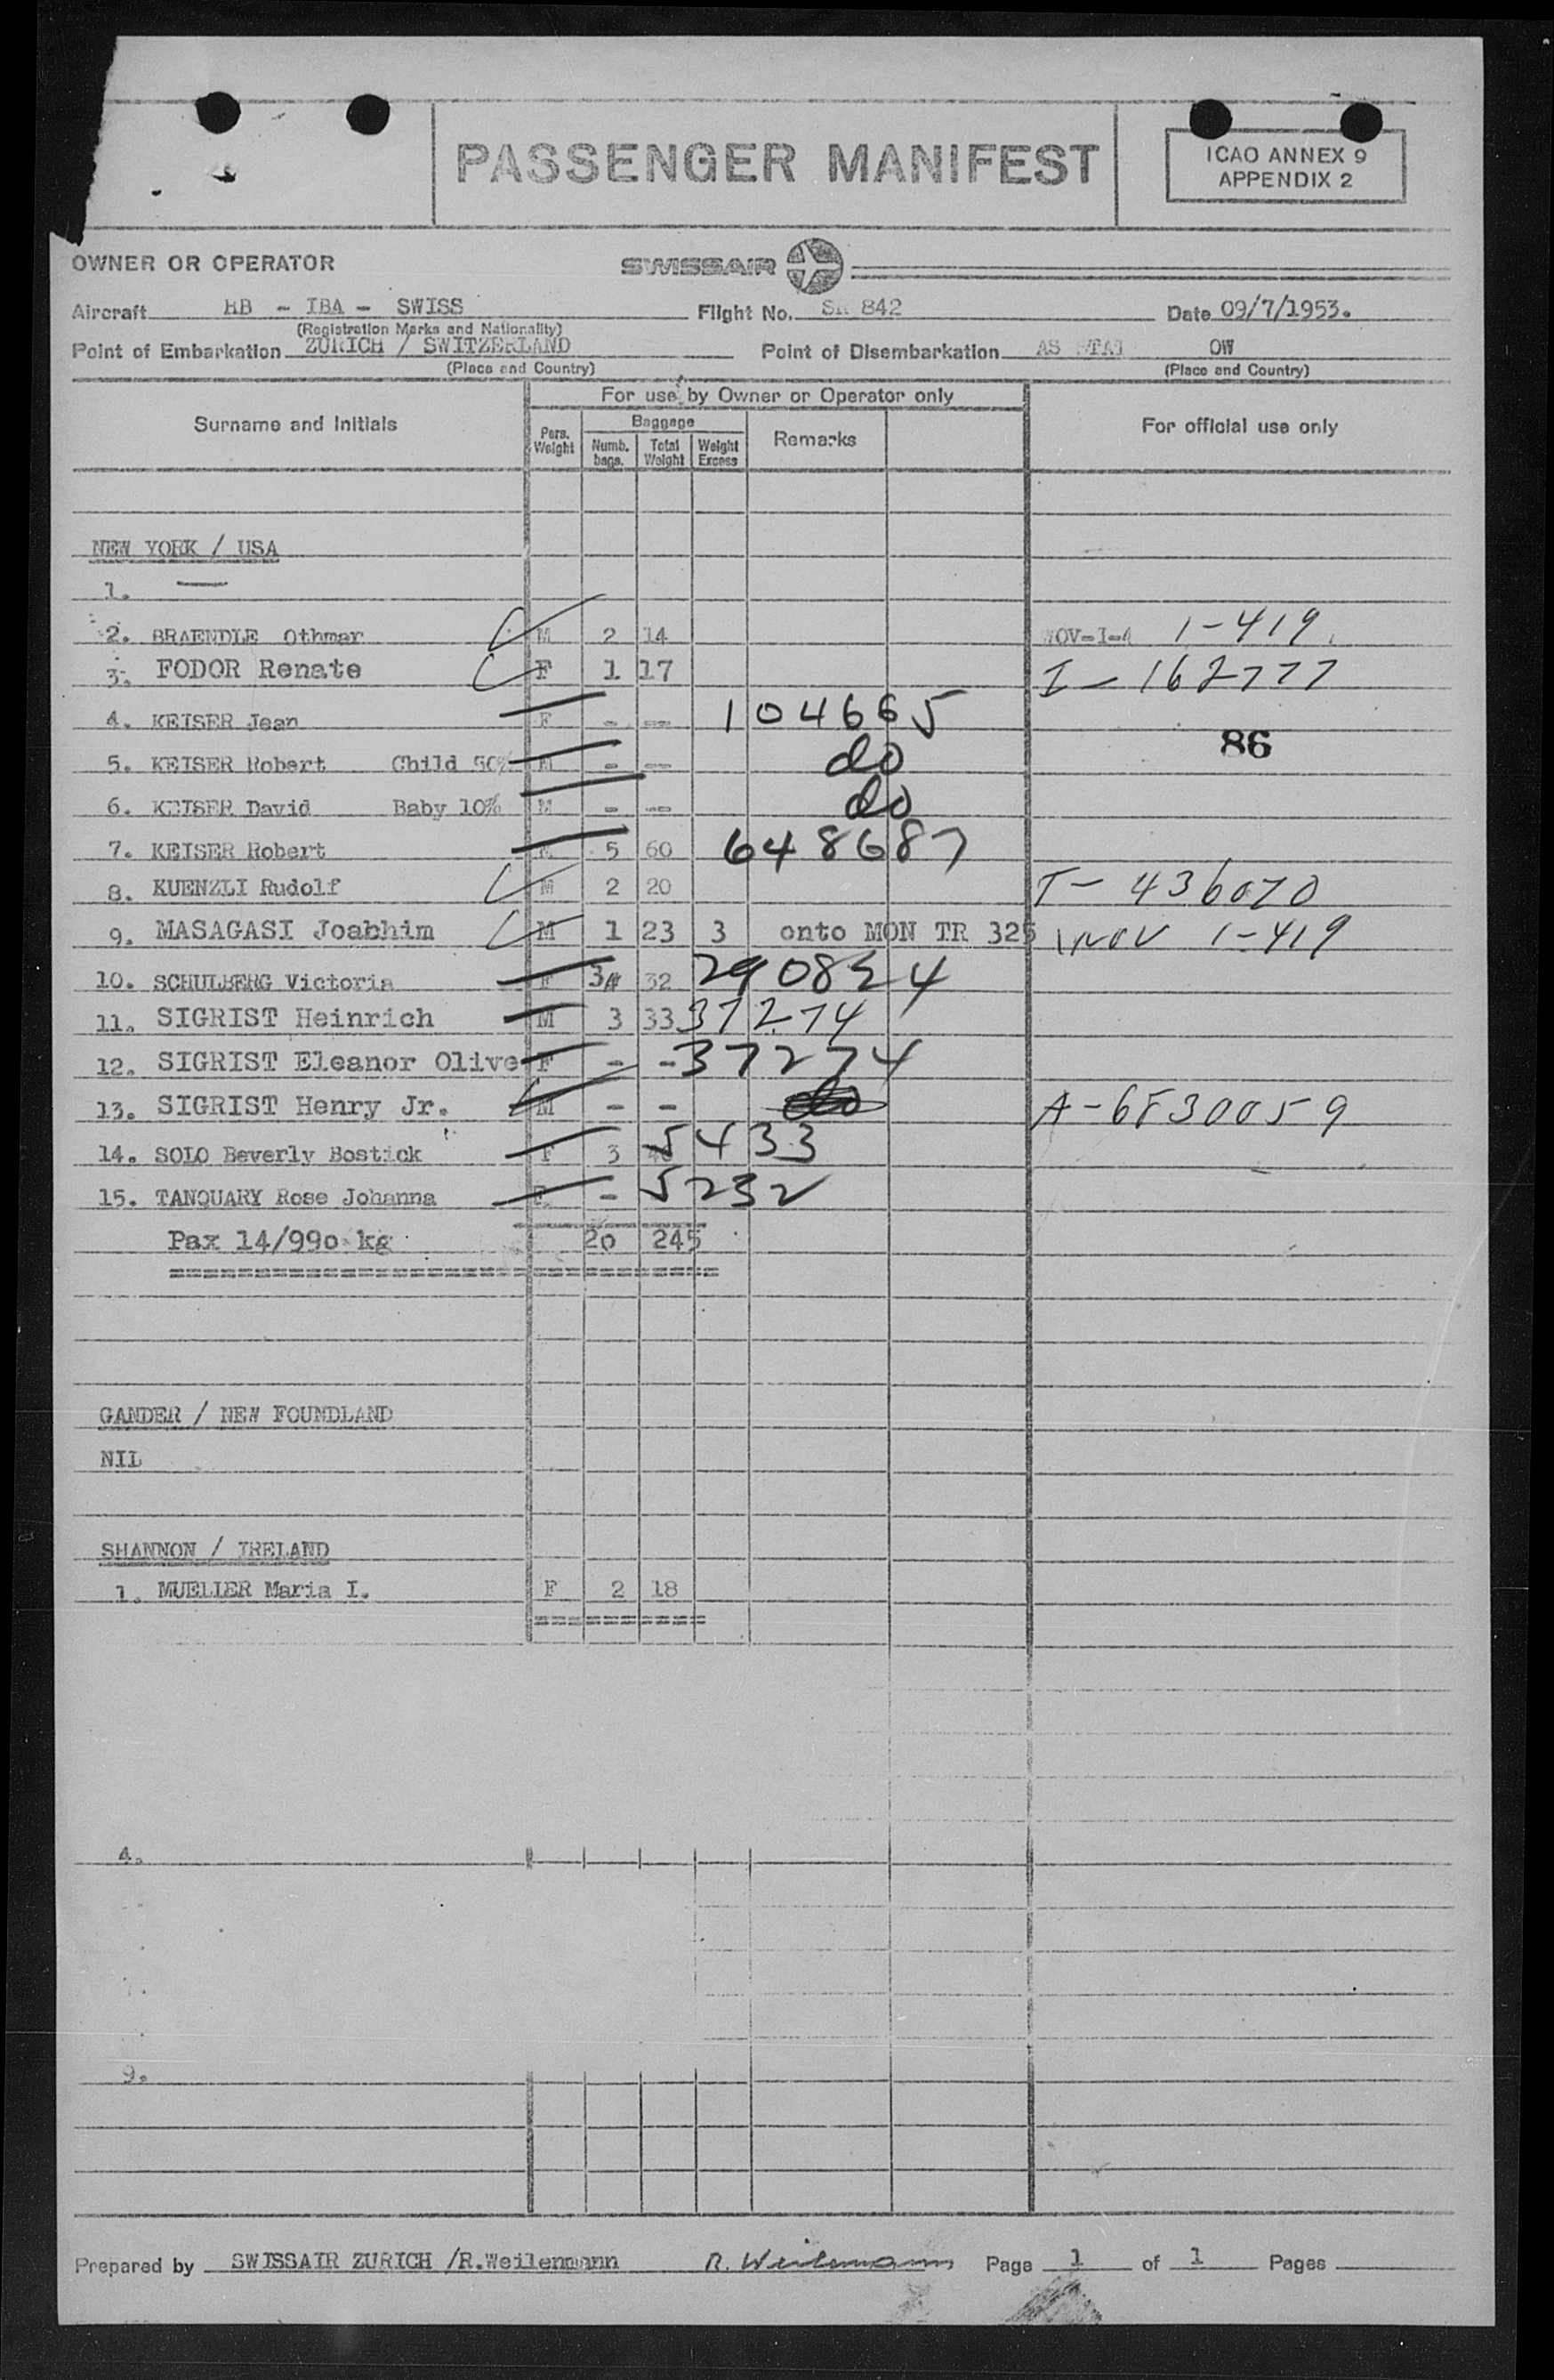 PASSENGER MANIFEST
ICAO ANNEX 9
APPENDIX 2
OWNER OR OPERATOR
SWISSAIR
Aircraft HB - IBA - SWISS Flight No. SR 842 Date 09/7/1953.
(Registration Marks and Nationality)
Point of Embarkation ZURICH / SWITZERLAND Point of Disembarkation AS OW
(Place and Country) (Place and Country)
For use by Owner or Operator only
Surname and Initials Pers. Weight Baggage Numb. bags. Total Weight Weight Excess Remarks For official use only
NEW YORK / USA
1. —
2. BRAENDLE Othmar M 2 14 1-419
3. FODOR Renate F 1 17 I-162777
4. KEISER Jean F - -- 104665
86
5. KEISER Robert Child 50% M - -- do
6. KEISER David Baby 10% M - -- do
7. KEISER Robert M 5 60 648687
8. KUENZLI Rudolf M 2 20 T-436070
9. MASAGASI Joabhim M 1 23 3 onto MON TR 325 1-419
10. SCHULBERG Victoria F 32 290824
11. SIGRIST Heinrich M 3 33 37274
12. SIGRIST Eleanor Olive F - - 37274
13. SIGRIST Henry Jr. M - - do A-6830059
14. SOLO Beverly Bostick F 3 5433
15. TANQUARY Rose Johanna F. - 5232
Pax 14/990 kg 20 245
=================================
GANDER / NEW FOUNDLAND
NIL
SHANNON / IRELAND
1. MUELLER Maria I. F 2 18
==========
4.
9.
Prepared by SWISSAIR ZURICH /R.Weilenmann R. Weilenmann Page 1 of 1 Pages